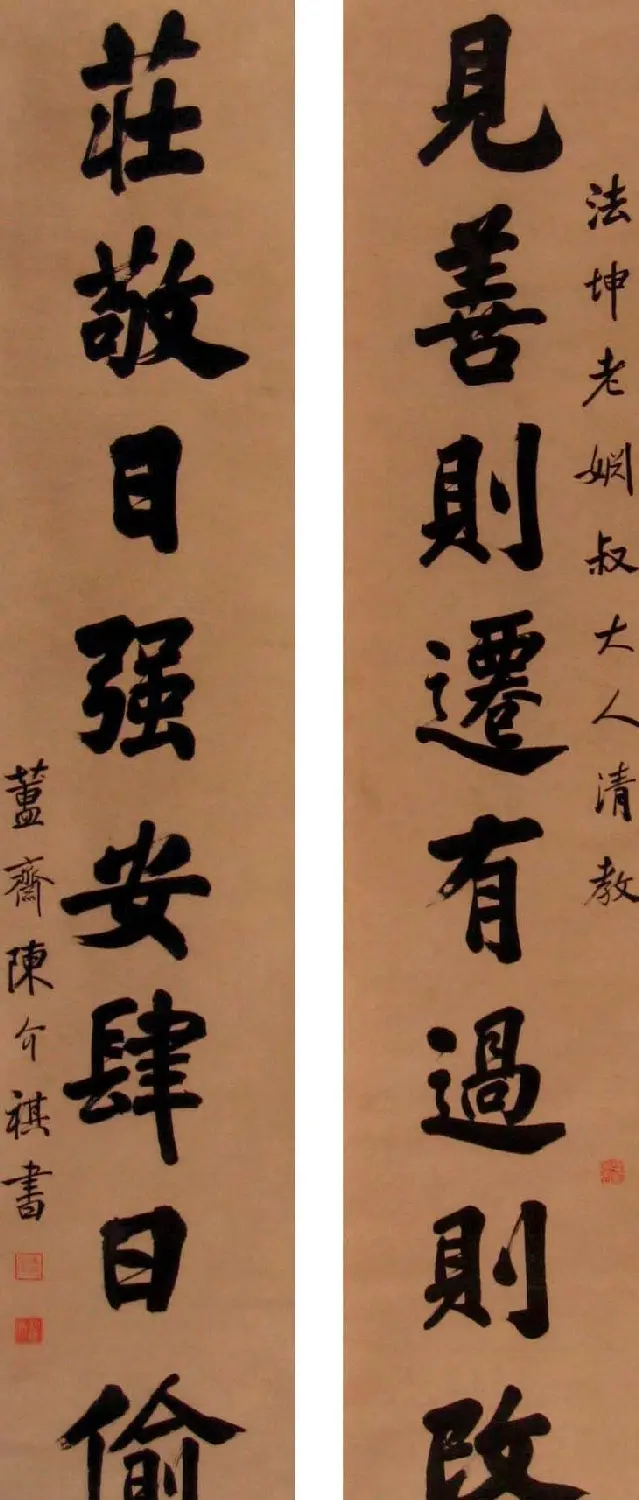 法坤老婣叔大人清教
見善則遷有過則改
莊敬目强安肆日偷
簠齋陳介祺書